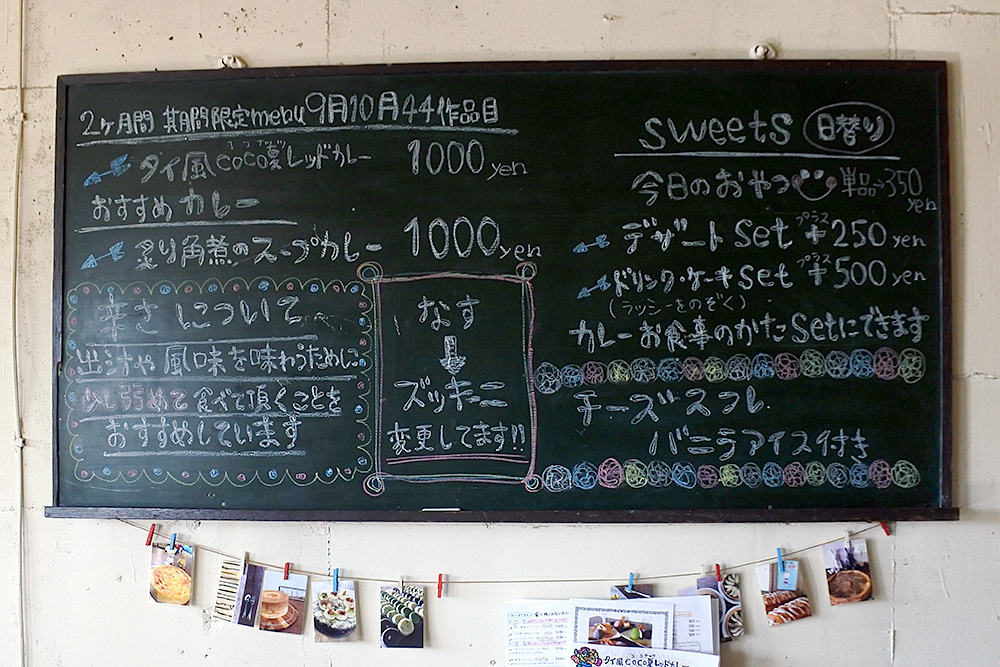 2ヶ月間 期間限定menu 9月10月 44作品目
ココナッツ
タイ風coco夏レッドカレー 1000yen
おすすめカレー
炙り角煮のスープカレー 1000yen
辛さについて
出汁や風味を味わうために
少し弱めで食べて頂くことを
おすすめしています
なす
↓
ズッキーニ
変更してます!!
sweets 日替り
今日のおやつ 単品→350yen
プラス
デザートset +250yen
プラス
ドリンク・ケーキset +500yen
(ラッシーをのぞく)
カレーお食事のかたsetにできます
チーズスフレ
バニラアイス付き
タイ風coco夏レッドカレー